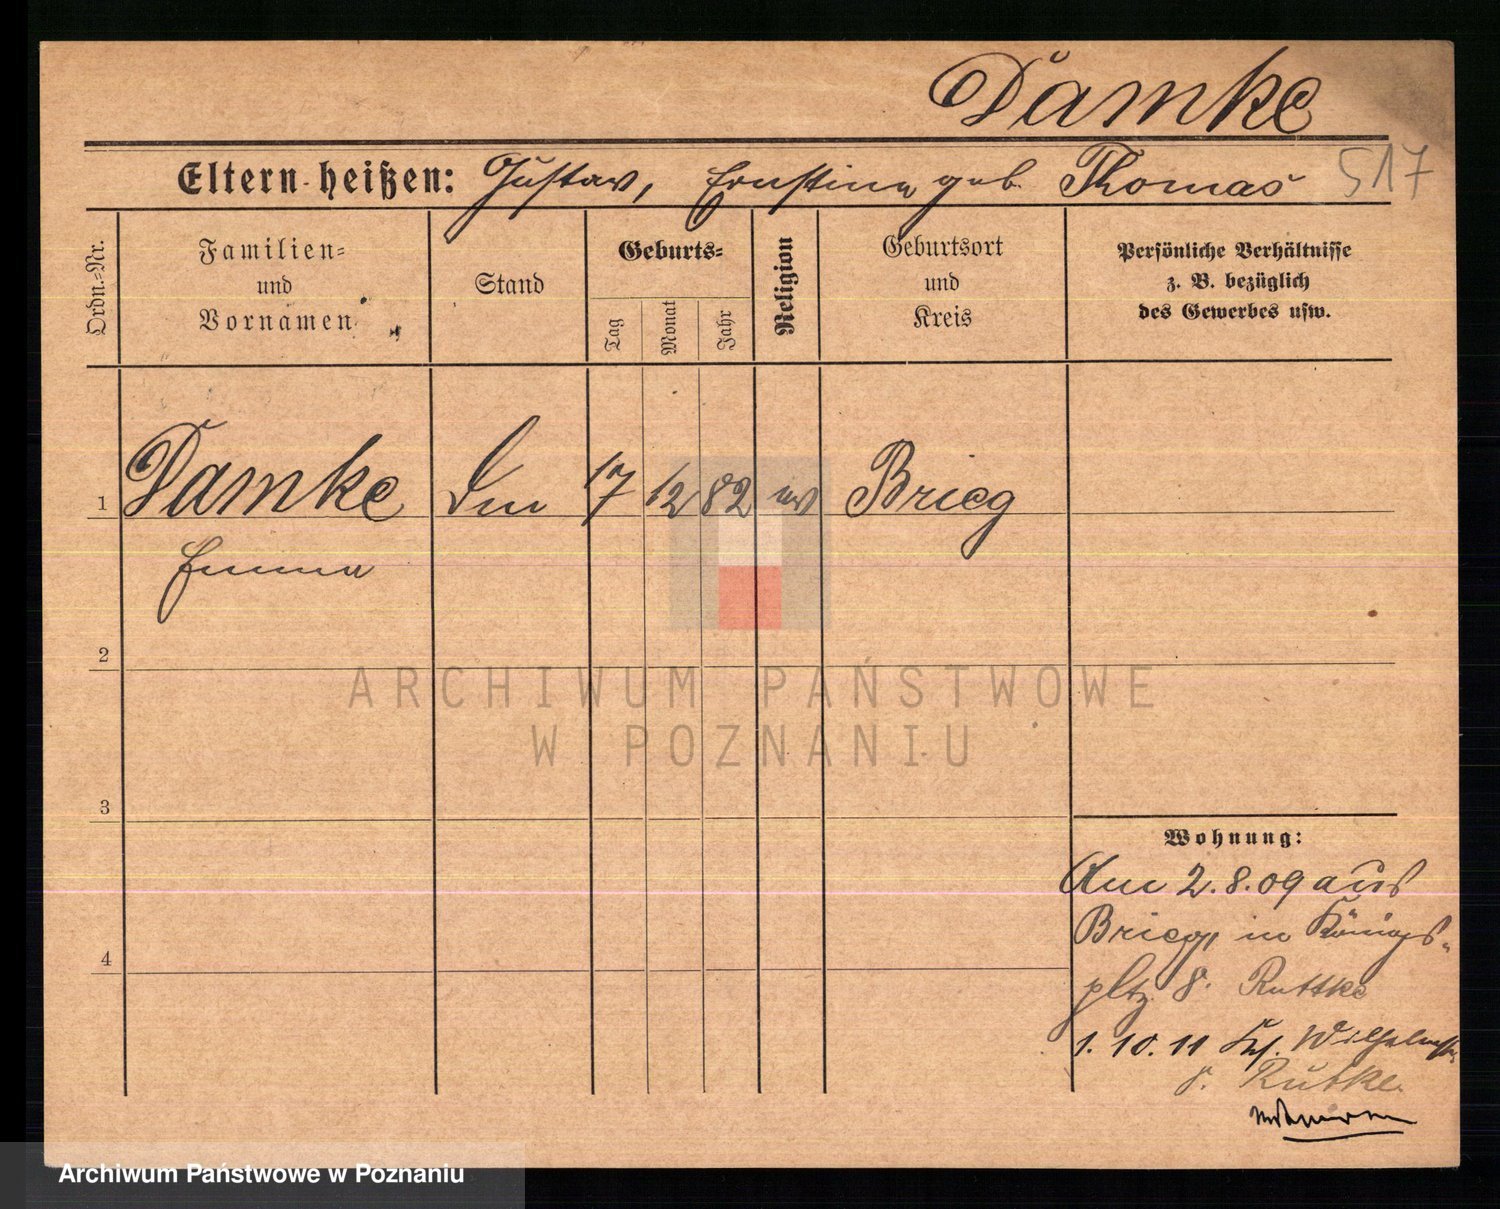 Damke
Eltern heißen: Gustav, Ernstine geb. Thomas 517
Ordn.-Nr.
Familien-
und
Vornamen
Stand
Geburts-
Tag
Monat
Jahr
Religion
Geburtsort
und
Kreis
Persönliche Verhältnisse
z. B. bezüglich
des Gewerbes usw.
1 Damke 17 12 82 ev Brieg
Emma
2
3
4
Wohnung:
Am 2.8.09 aus
Brieg, in Königs-
pltz 8. Ruttke
1. 10. 11 Wilhelmstr.
8. Rutke
ARCHIWUM PAŃSTWOWE
W POZNANIU
Archiwum Państwowe w Poznaniu